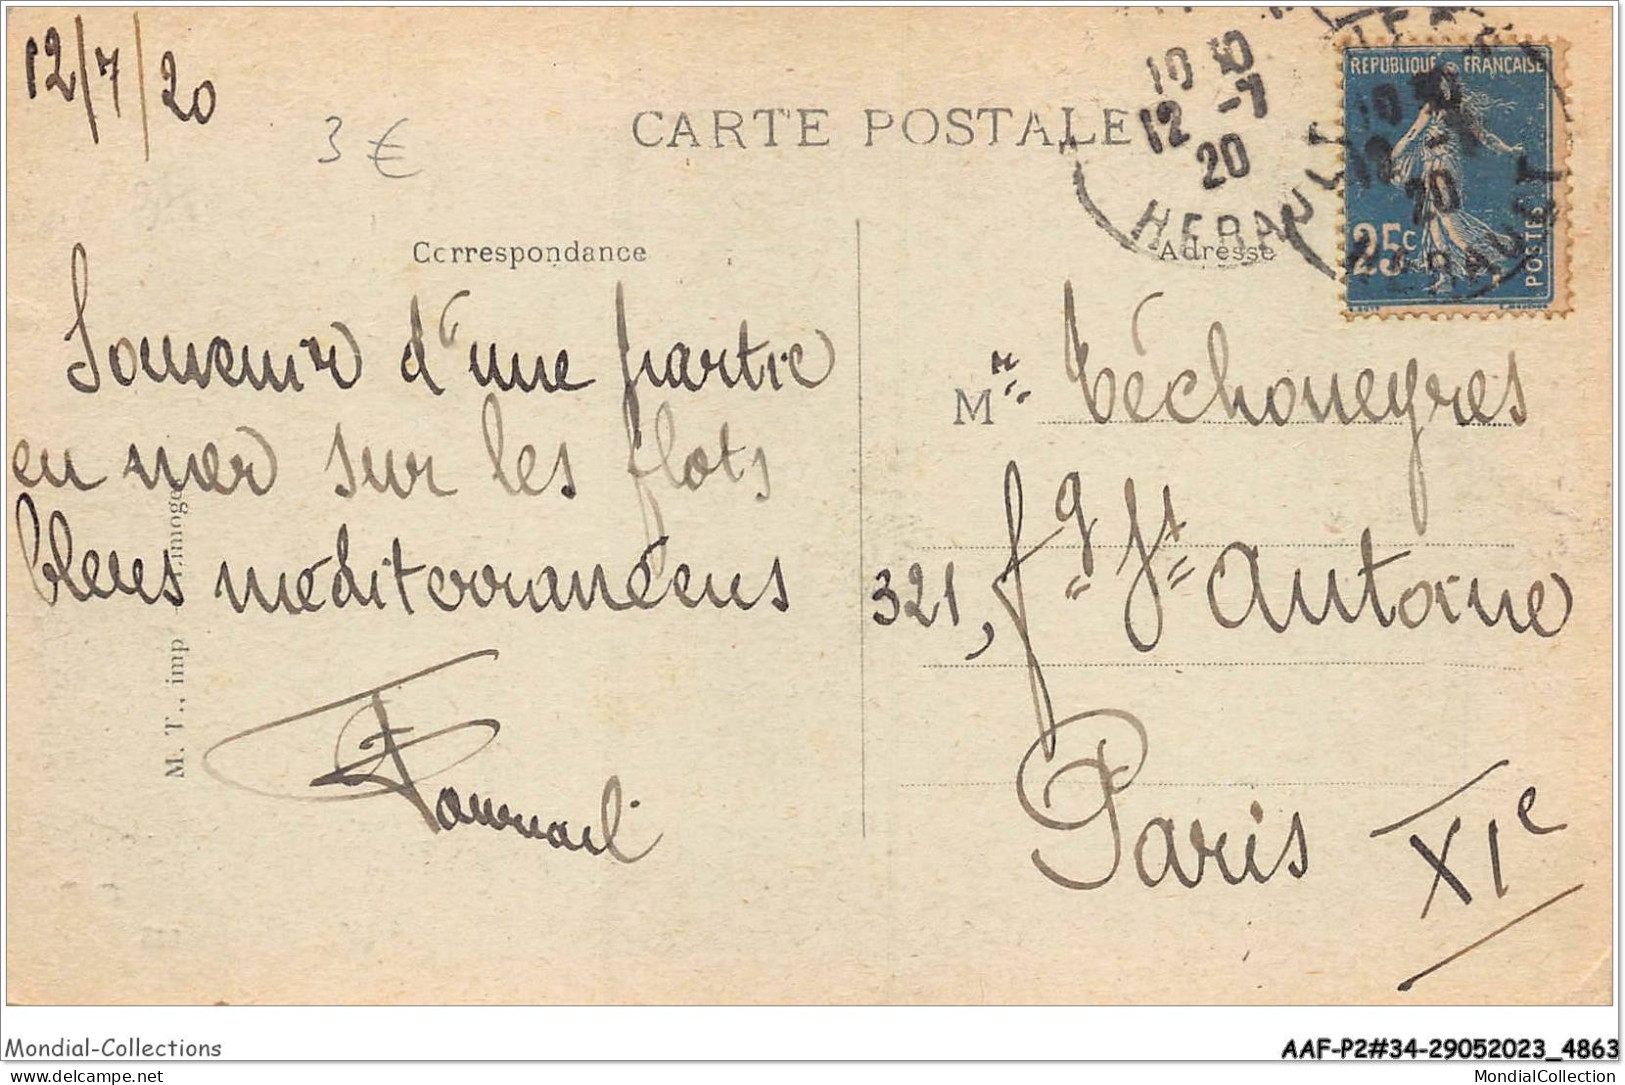 12/7/20
3 €
CARTE POSTALE
10 12 -7 20
HERAULT
REPUBLIQUE FRANÇAISE
25c
POSTES
Correspondance
Adresse
Souvenir d'une partie
en mer sur les flots
bleus méditerranéens
Mr Téchoueyres
321, fg St Antoine
Paris XIe
M. T., imp Limoges
Mondial-Collections
AAF-P2#34-29052023_4863
delcampe.net
MondialCollection